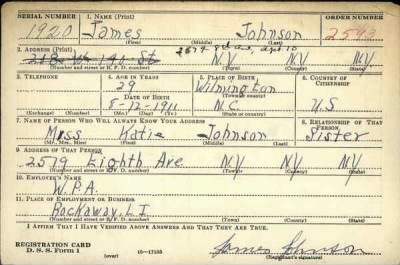 SERIAL NUMBER 1. NAME (Print) ORDER NUMBER
1920 James Johnson 2593
(First) (Middle) (Last)
2. ADDRESS (Print) 2579 8th ave, apt 10
218 W 141 St N.Y N.Y N.Y
(Number and street or R. F. D. number) (Town) (County) (State)
3. TELEPHONE 4. AGE IN YEARS 5. PLACE OF BIRTH 6. COUNTRY OF CITIZENSHIP
29 Wilmington
DATE OF BIRTH (Town or county)
8-12-1911 N.C. U.S
(Exchange) (Number) (Mo.) (Day) (Yr.) (State or country)
7. NAME OF PERSON WHO WILL ALWAYS KNOW YOUR ADDRESS 8. RELATIONSHIP OF THAT PERSON
Miss Katie Johnson Sister
(Mr., Mrs., Miss) (First) (Middle) (Last)
9. ADDRESS OF THAT PERSON
2579 Eighth Ave N.Y N.Y N.Y
(Number and street or R. F. D. number) (Town) (County) (State)
10. EMPLOYER'S NAME
W.P.A.
11. PLACE OF EMPLOYMENT OR BUSINESS
Rockaway, L.I
(Number and street or R. F. D. number) (Town) (County) (State)
I AFFIRM THAT I HAVE VERIFIED ABOVE ANSWERS AND THAT THEY ARE TRUE.
REGISTRATION CARD James Johnson
D. S. S. Form 1 (over) (Registrant's signature)